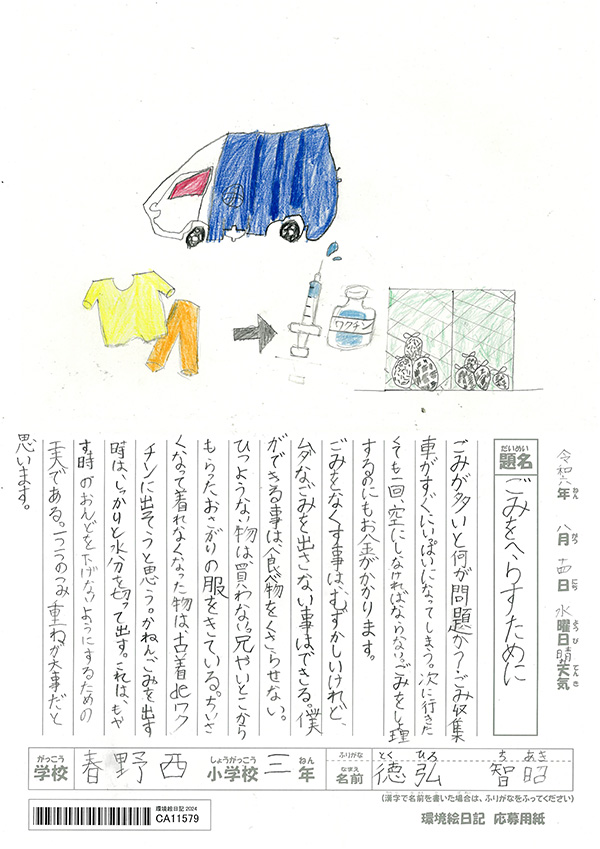 ワクチン
令和六年 八月 十四日 水曜日 晴天気
ねん がつ にち ようび てんき
だいめい
題名
ごみをへらすために
ごみが多いと何が問題か?ごみ収集
車がすぐにいっぱいになってしまう。次に行きた
くても一回、空にしなければならない。ごみをしょ理
するのにもお金がかかります。
ごみをなくす事は、むずかしいけれど、
ムダなごみを出さない事はできる。僕
ができる事は、食べ物をくさらせない。
ひつようない物は、買わない。兄やいとこから
もらったおさがりの服をきている。ちいさ
くなって着れなくなった物は、古着deワク
チンに出そうと思う。かねんごみを出す
時は、しっかりと水分を切って出す。これは、もや
す時のおんどを下げないようにするための
工夫である。一つ一つのつみ重ねが大事だと
思います。
がっこう しょうがっこう ねん ふりがな とく ひろ ち あき
学校 春野西 小学校 三年 なまえ 名前 徳弘 智昭
(漢字で名前を書いた場合は、ふりがなをふってください)
環境絵日記 2024
CA11579
環境絵日記 応募用紙